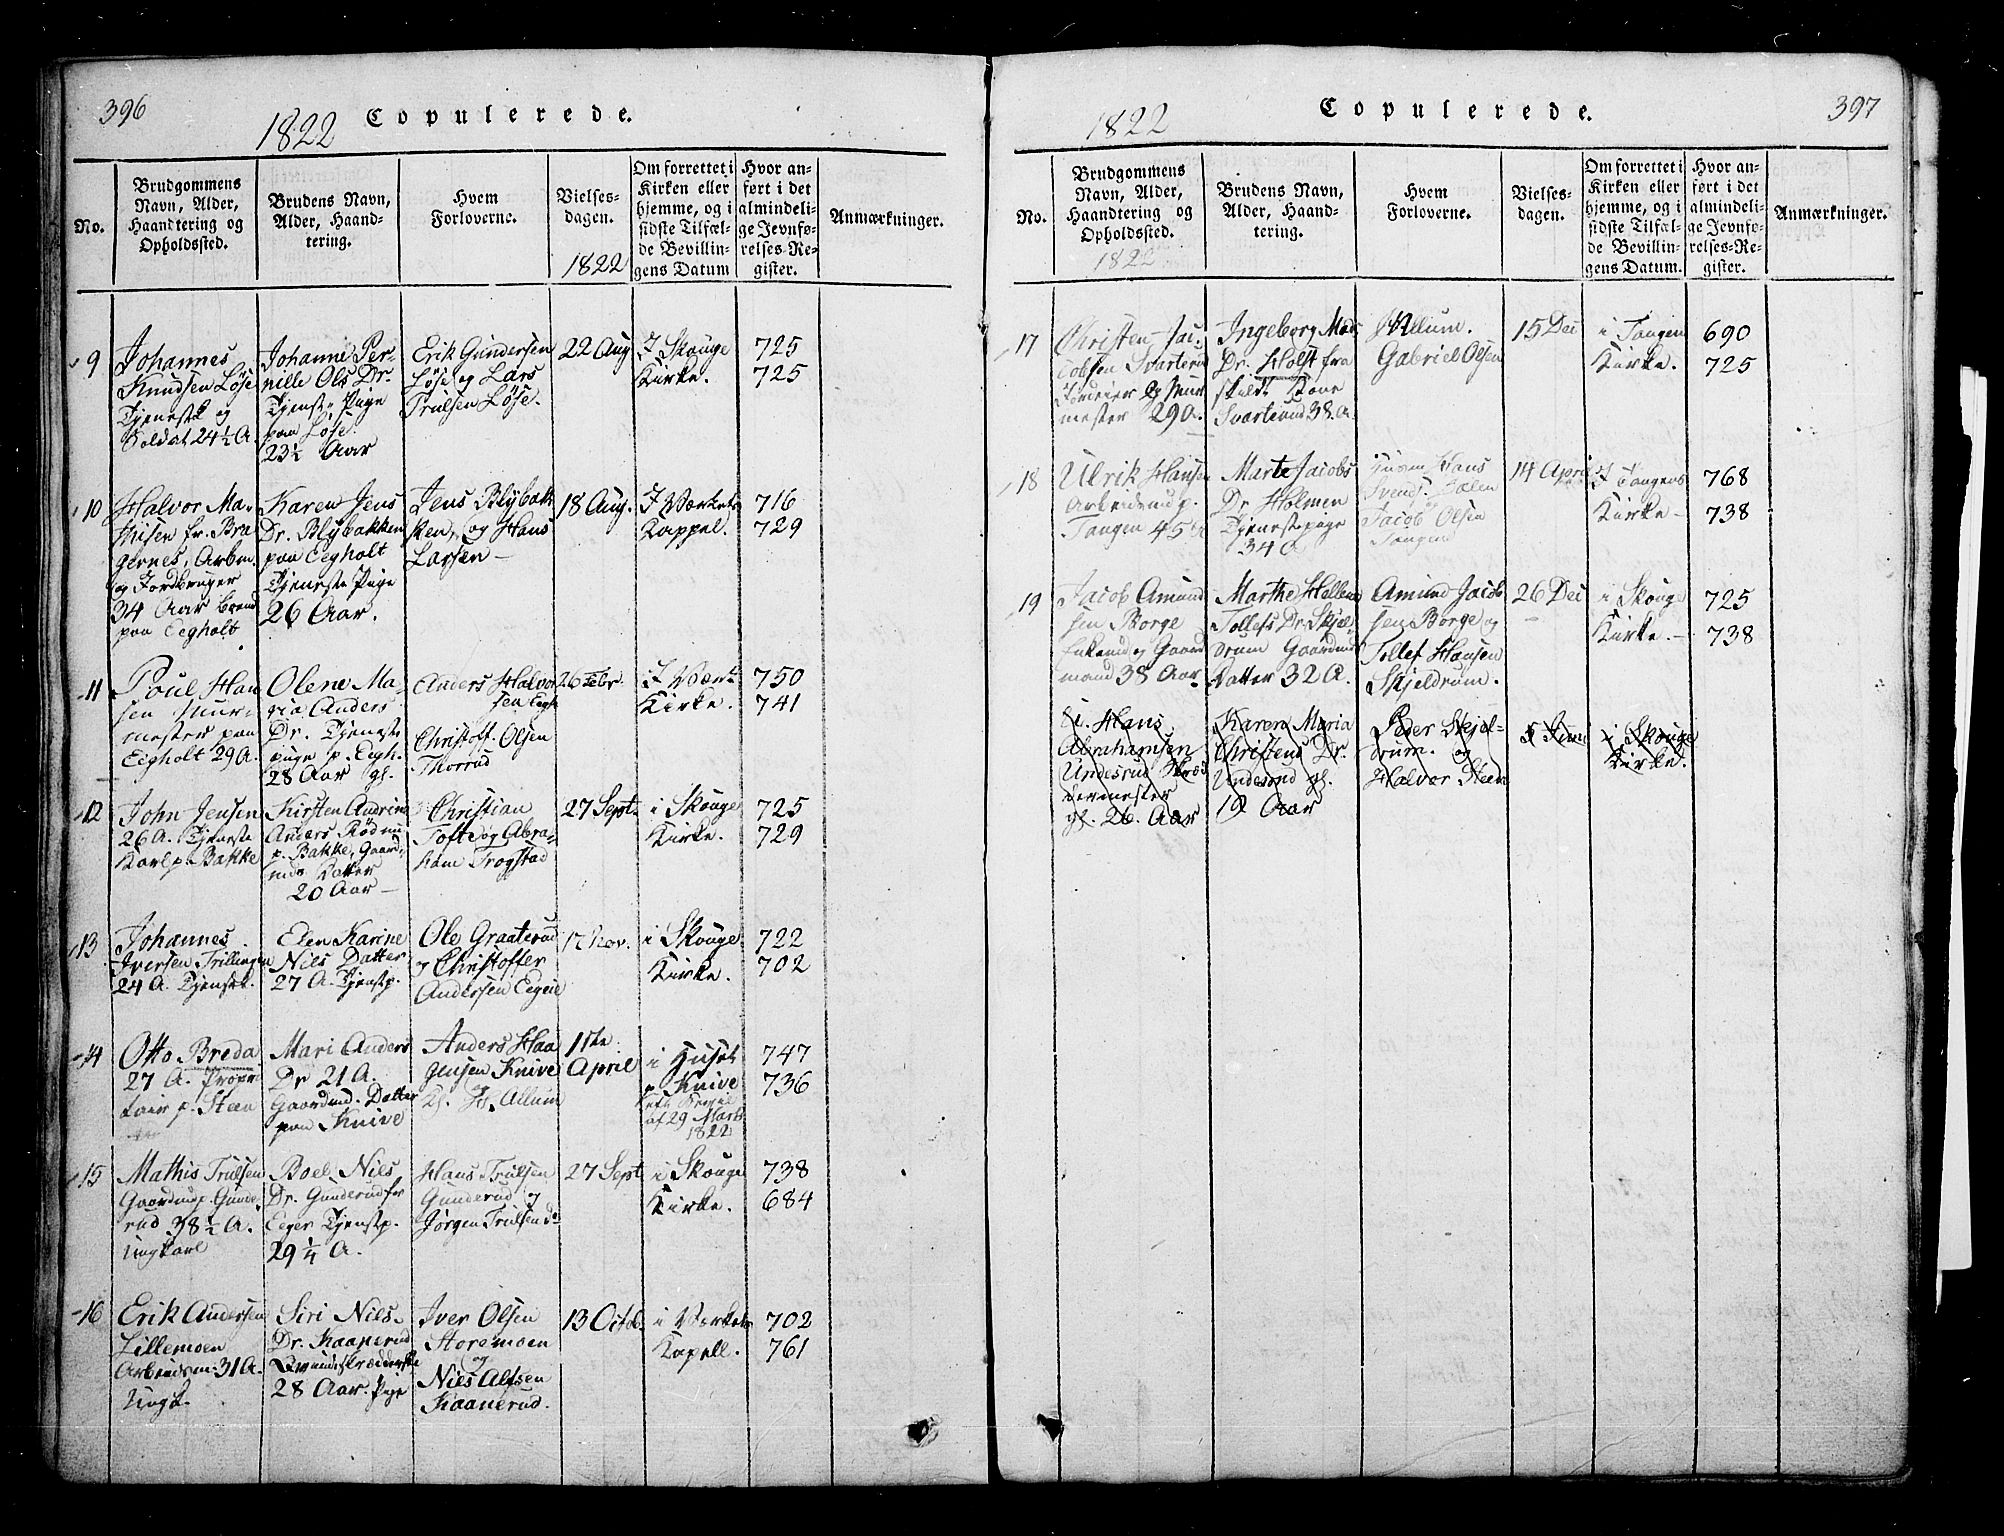 396
1822
Copulerede.
No.
Brudgommens
Navn, Alder,
Haandtering og
Opholdssted.
Brudens Navn,
Alder, Haand-
tering.
Hvem
Forloverne.
Vielses-
dagen.
1822
Om forrettet i
Kirken eller
hjemme, og i
sidste Tilfæl-
de Bevillin-
gens Datum
Hvor an-
ført i det
almindeli-
ge Jevnfø-
relses-Re-
gister.
Anmærkninger.
9
Johannes
Knudsen Løse
Tjenestk og
Soldat 24½ A.
Johanne Per-
nille Ols Dr.
Tjenste Pige
paa Løse.
23½ Aar
Erik Gundersen
Løse og Lars
Trulsen Løse.
22 Aug
I Skouge
Kirke.
725
725
10
Halvor Ma-
thisen fr. Bra
gernes, Arbm.
og Jordbruger
34 Aar
paa Eegholt
Karen Jens
Dr. Blybakken
paa Eegholt
Tjeneste Pige
26 Aar.
Jens Blybak
ken, og Hans
Larsen -
18 Aug.
I Værkets
Kappel.
716
729
11
Poul Han
sen Muur-
mester paa
Eigholt 29 A.
Olene Ma-
ria Anders
Dr. Tjeneste
pige p. Eegh.
28 Aar gl.
Anders Halvor
sen Eegh
Christoff. Olsen
Thorrud
26 Febr.
I Værk
Kirke.
750
741
12
John Jensen
26 A. Tjeneste
Karl p. Bakke
Kirsten Andrine
Anders Rød
p. Bakke, Gaard-
mds Datter
20 Aar -
Christian
Tofte og Abra-
ham Trogstad
27 Sept.
i Skouge
Kirke.
725
729
13
Johannes
Iversen Trillingen
24 A. Tjenstk.
Elen Karine
Nils Datter
27 A. Tjenstp.
Ole Graaterud
og Christoffer
Andersen Eegeie
17 Nov.
i Skouge
Kirke.
722
702
14
Otto Breda
27 A. Propr-
tair p. Steen
Mari Anders
Dr 21 A.
Gaardmd. Datter
paa Knive
Anders Haa
gensen Knive
Allum
11te
April
i Huset
p Knive
af 29 Marts
1822
747
736
15
Mathis Trulsen
Gaardmd p. Gunde-
rud 38½ A.
Ungkarl
Boel Nils
Dr. Gunderud fr
Eeger Tjenstp.
29¼ A.
Hans Trulsen
Gunderud og
Jørgen Trulsen do
27 Sept
i Skouge
Kirke.
738
684
16
Erik Andersen
Lillemoen
Arbeidsm. 31 A.
Ungk.
Siri Nils-
Dr. Kaanerud
28 Aar. Pige
Iver Olsen
Storemoen
og
Nils Alfsen
Kaanerud.
13 Octob.
i Værkets
Kapell.
702
761
397
1822
Copulerede.
No.
Brudgommens
Navn, Alder,
Haandtering og
Opholdssted.
1822
Brudens Navn,
Alder, Haand-
tering.
Hvem
Forloverne.
Vielses-
dagen.
Om forrettet i
Kirken eller
hjemme, og i
sidste Tilfæl-
de Bevillin-
gens Datum.
Hvor an-
ført i det
almindeli-
ge Jevnfø-
relses-Re-
gister.
Anmærkninger.
17
Christen Ja-
cobsen Svarterud
Jordeier og Mur
mester 29 A.
Ingeborg Mads
Dr. Holst fra
skildt Kone
Svarterud 38. A.
Allum.
Gabriel Olsen
15 Dec
i Tangen
Kirke.
690
725
18
Ulrik Hansen
Arbeidsmd p.
Tangen 45 A
Marte Jacobs
Dr Holmen
Tjenestepige
34 A
Hans
Svends.
Jacob Olsen
Tangen
14 April
I Tangens
Kirke -
768
738
19
Jacob Amund
sen Borge
Enkemd og Gaard
mand 38 Aar
Marthe Hellene
Tollefs Dr. Skjel-
drum Gaardmds
Datter 32 A.
Amund Jacob
sen Borge og
Tollef Hansen
Skjeldrum.
26 Dec
i Skouge
Kirke. -
725
738
Hans
Abrahamsen
Undesrud Skræd
dermester
gl. 26. Aar
Karen Maria
Christens Dr.
Undesrud gl.
19 Aar
Peder Skjel-
drum. og
Halvor Steen
5 Juni
i Skouge
Kirke.